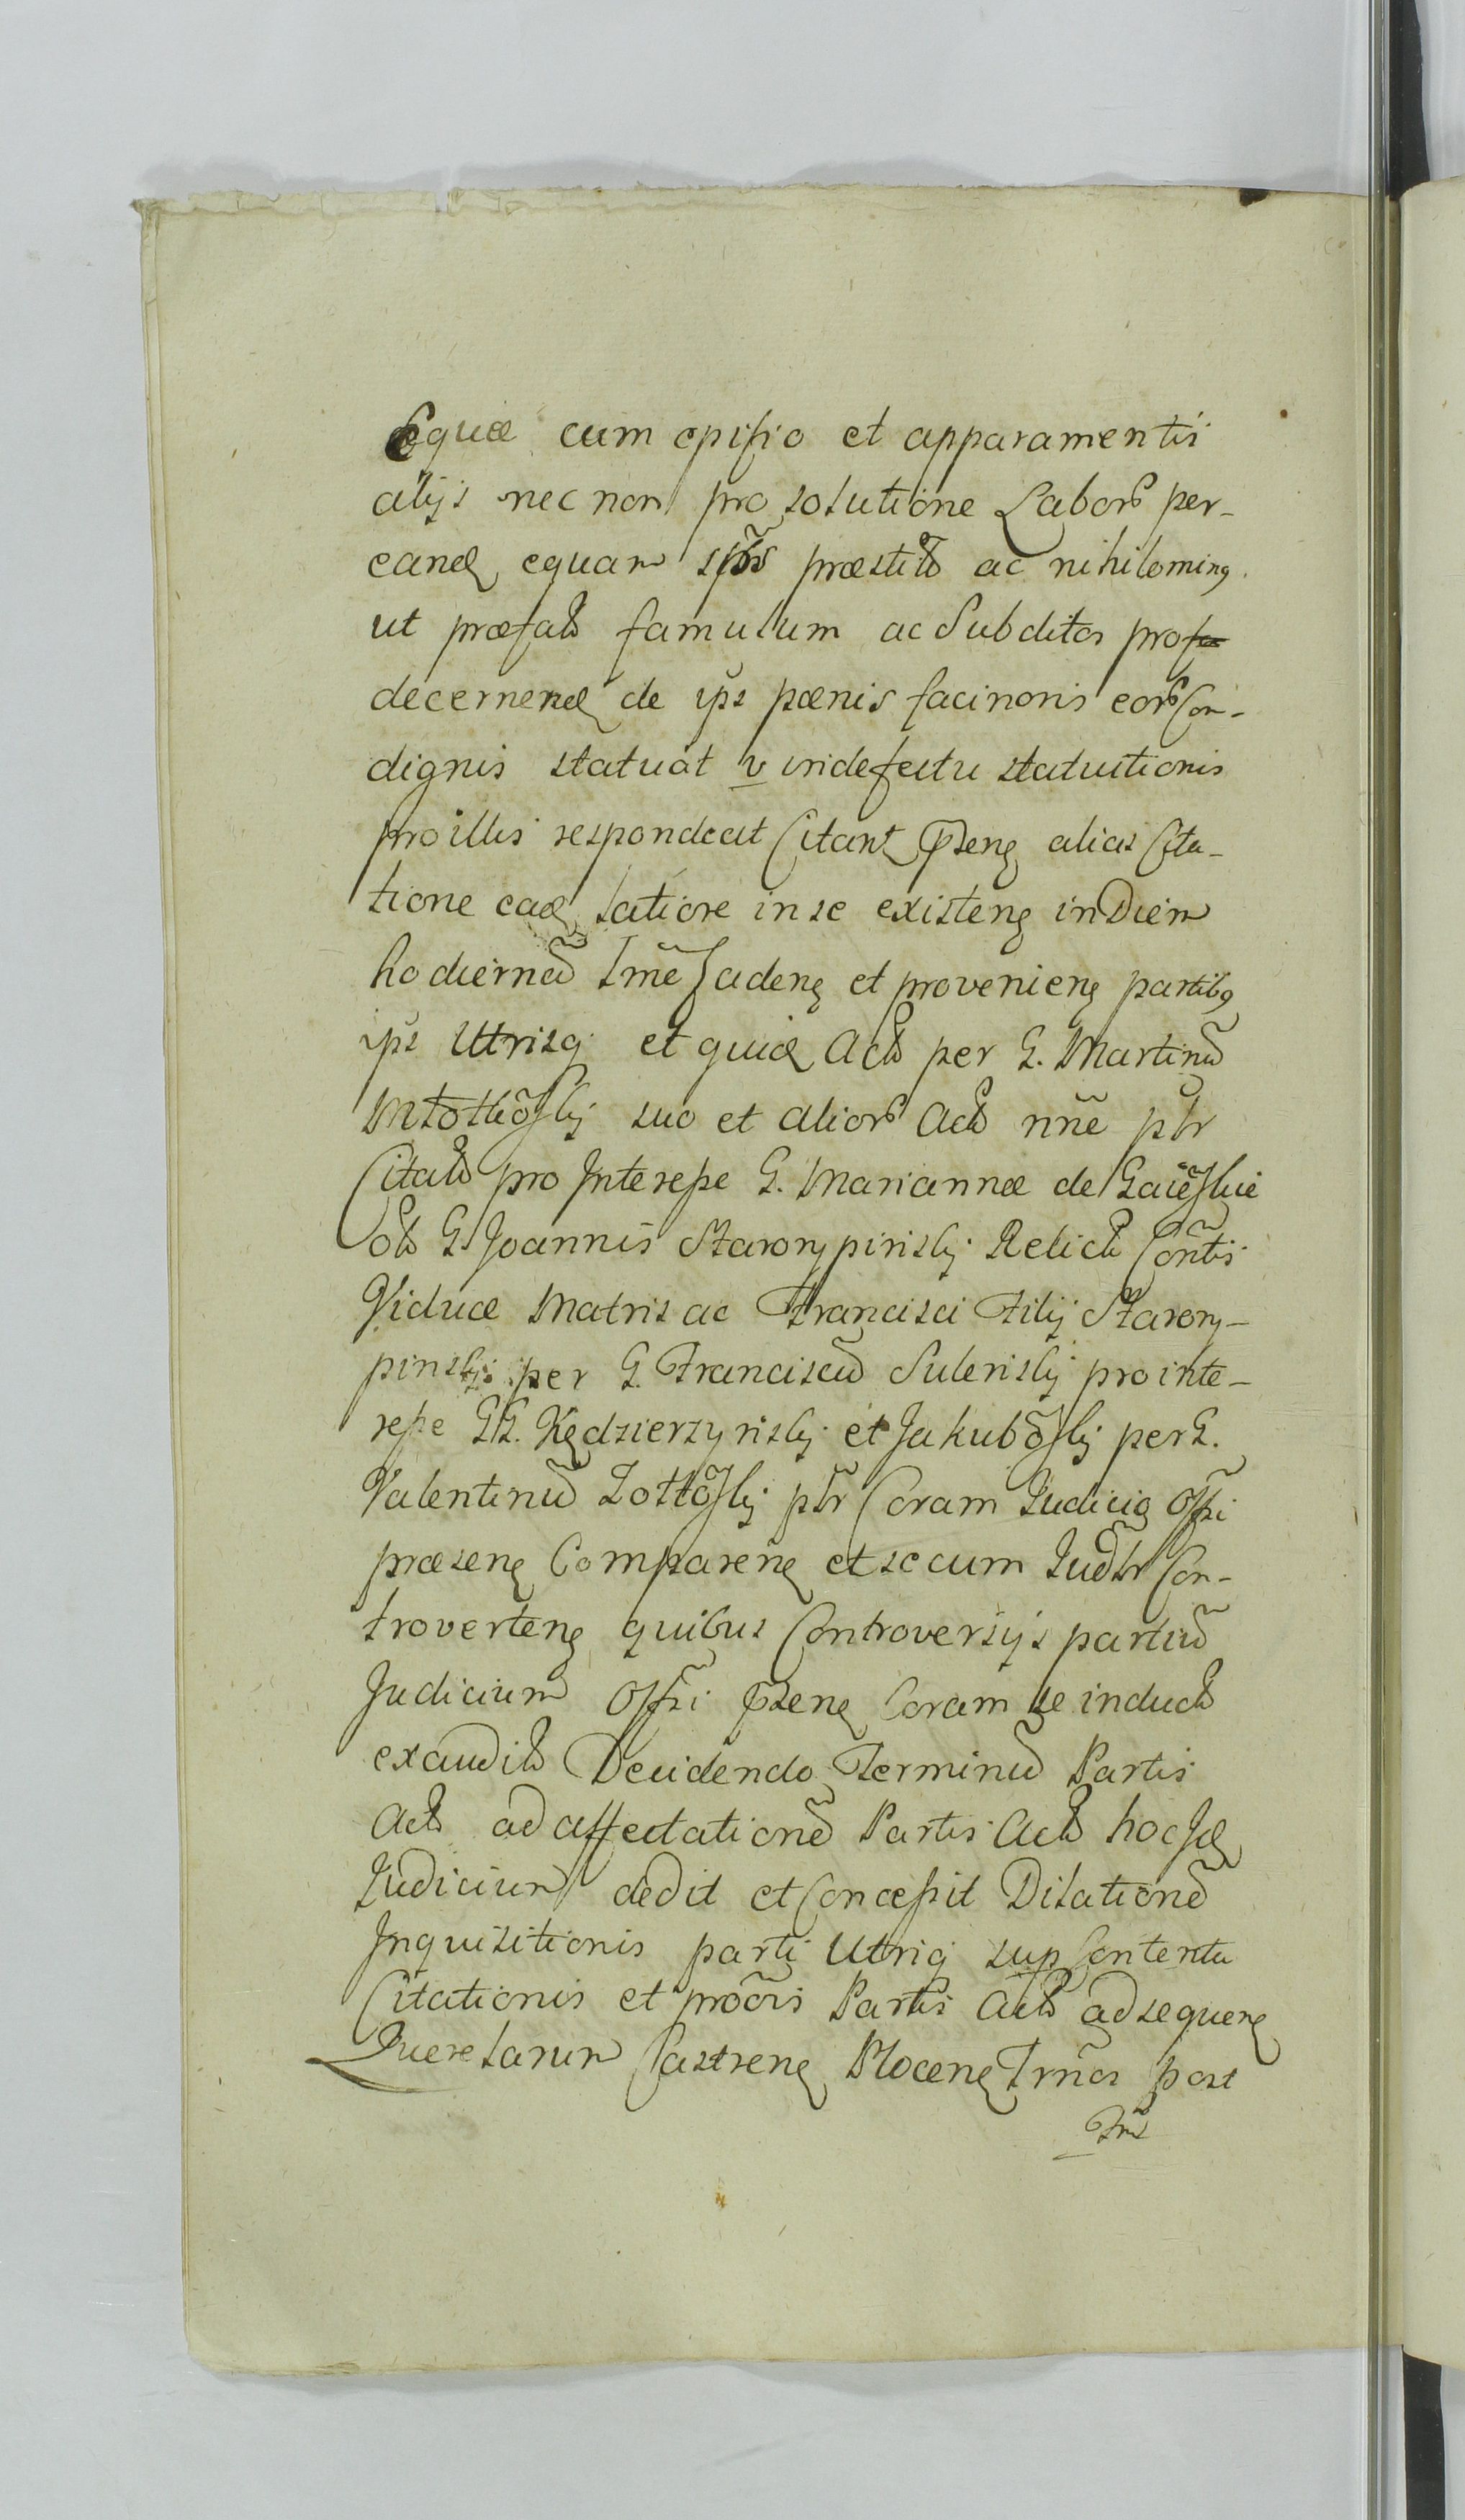 Equæ cum epißio et apparamentis
alijs nec non pro solutione Labor̃ per-
eand equam præstit̃ ac nihilominq
ut præfat̃ famulum ac Subditos pro
decernend de ips pænis facinoris eor̃ Con-
dignis statuat v indefectu statuitionis
pro illis respondeat Citant p̃seng alias Cita-
tione ead latiore in se existeng in Diem
hodiernũ tm̃e Cadeng et provenieng partibq
ips Utrisq et quid Act̃ per G. Martinũ
Młotkõskj suo et alior̃ Act̃ nñe ptr̃
Citat̃ pro Interesse G. Mariannæ de
olt̃ G. Joannis Starorypinskj Relict̃ Cõntis
Viduæ Matris ac Francisci Filij Starory-
pinskj per G. Franciscũ Sulenskj pro inte-
resse GG. Kędzierzynskj et Jakubõskj per G.
Valentinũ Zottõskj ptr̃ Coram Judicio Offi
præseng Compareng et secum Judtr̃ Con-
troverteng quibus Controversijs partiũ
Judicium Offi p̃seng Coram se induct̃
exaudit̃ Decidendo Terminũ Partis
Act̃ ad affectationẽ Partis Act̃ hoc Jd
Judicium dedit et Concessit Dilationẽ
Inquisitionis parti Utriq sup Contentu
Citationis et procõris Partis Act̃ ad sequeng
Querelarum Castreng Ploceng Trm̃os post
Trm̃